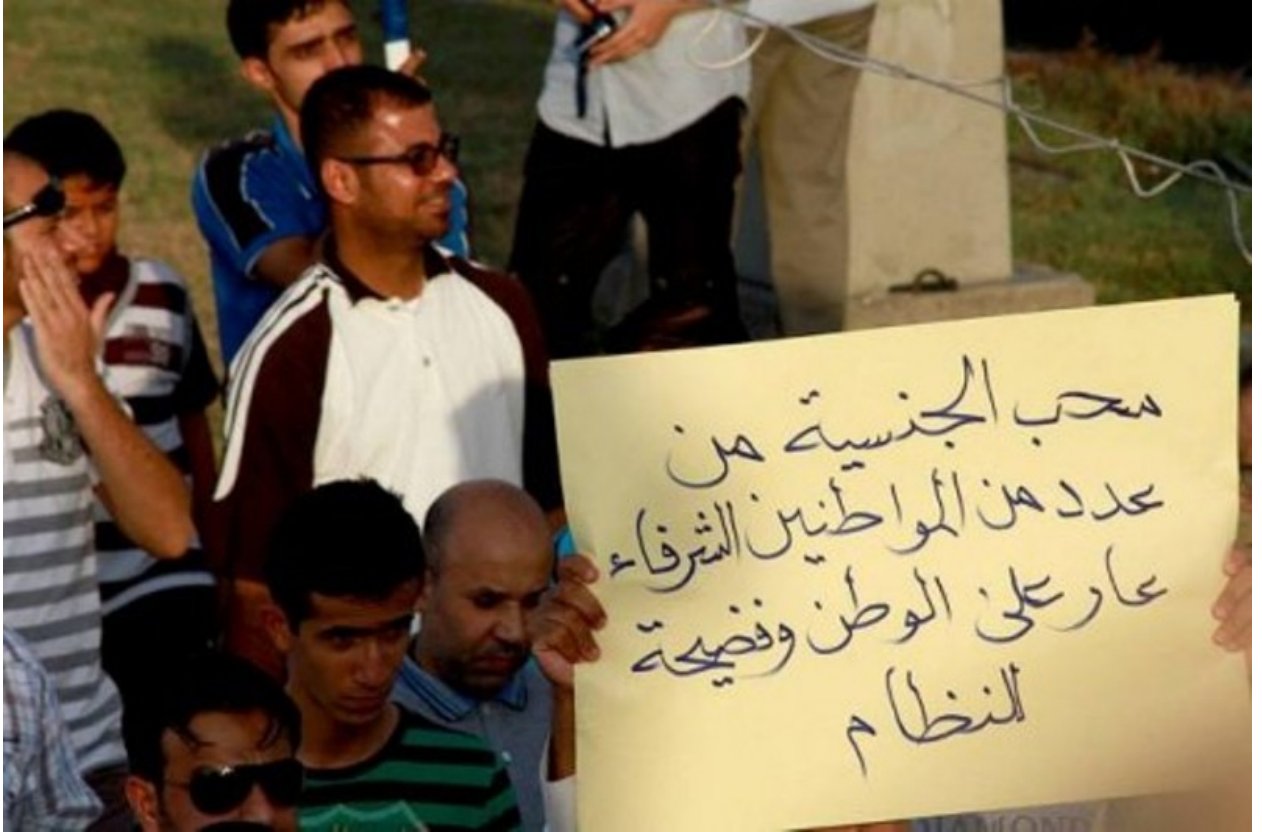 سحب الجنسية من
عدد من المواطنين الشرفاء
عار على الوطن وفضيحة
للنظام